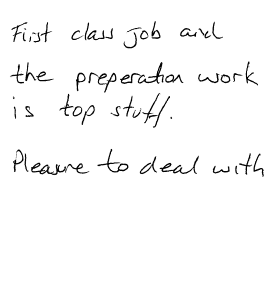 First class job and
the preperation work
is top stuff.
Pleasure to deal with